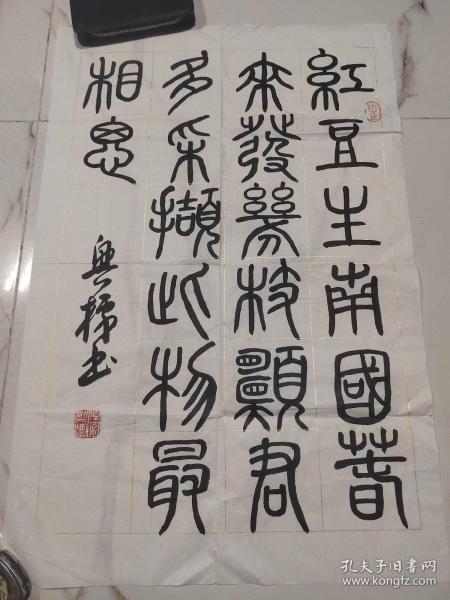 紅豆生南國萅
來發幾枝願君
多采擷此物最
相思
興梯书
孔夫子旧书网
www.kongfz.com